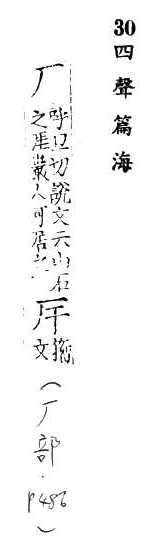 30四聲篇海
厂 呼旦切說文云山石之厓巖人可居之 厈 籀文（厂部．P486）